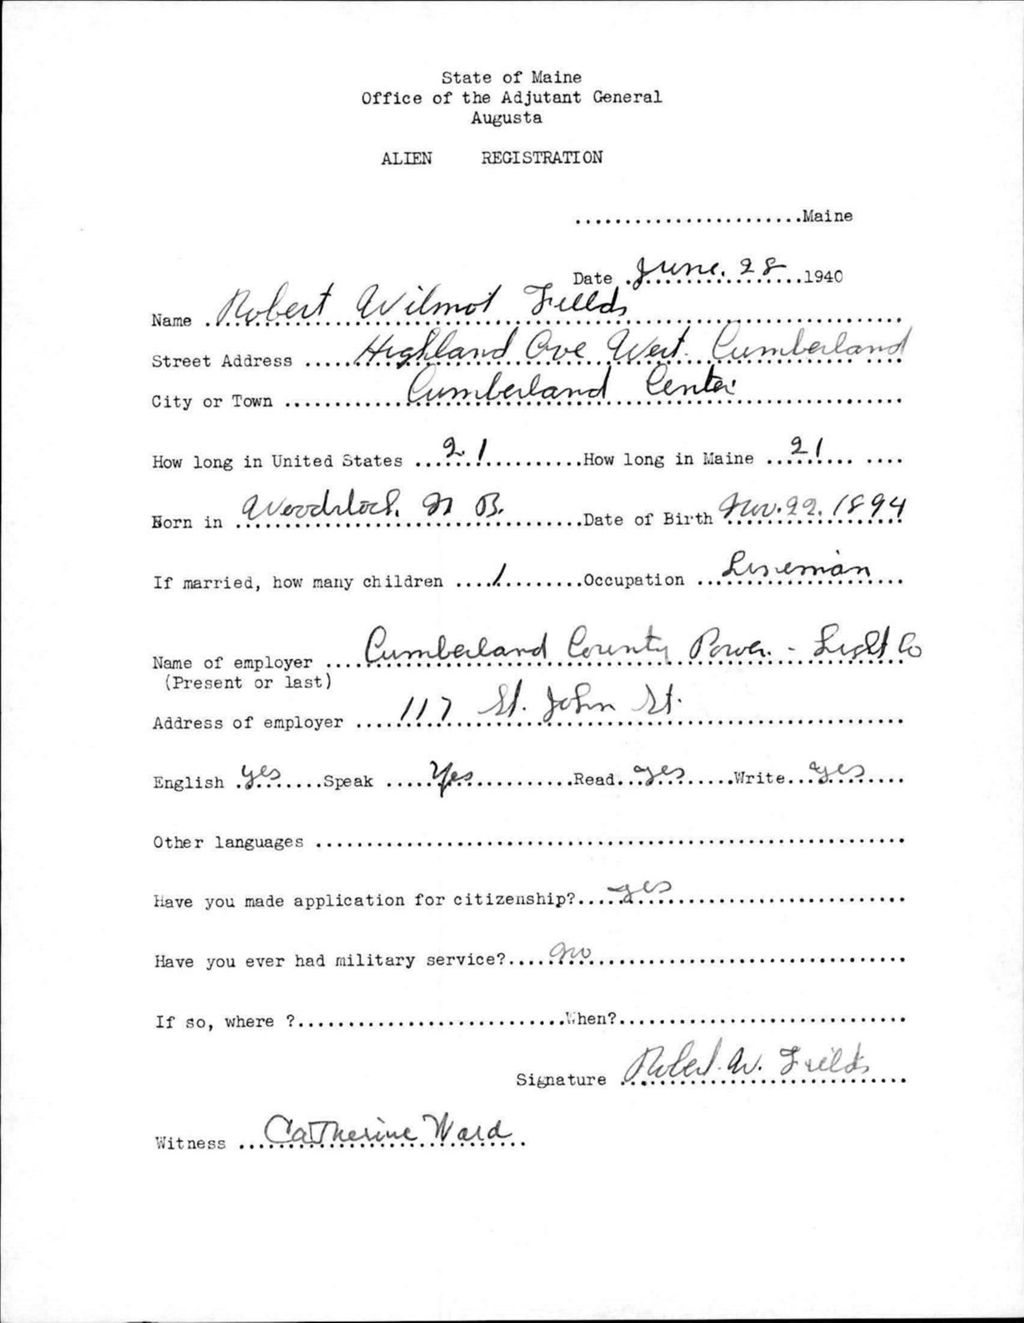 State of Maine
Office of the Adjutant General
Augusta
ALIEN REGISTRATION
.......................Maine
Date June. 28 1940
Name Robert Wilmot Fields
Street Address Highland Ave West Cumberland
City or Town Cumberland Center
How long in United States 21 How long in Maine 21
Born in Woodstock, N B. Date of Birth Nov. 22. 1894
If married, how many children 1 Occupation Lineman
Name of employer Cumberland County Power - Light Co
(Present or last)
Address of employer 117 St. John St.
English yes Speak Yes Read yes Write yes
Other languages
Have you made application for citizenship? yes
Have you ever had military service? no
If so, where ? When?
Signature Robert W. Fields
Witness Catherine Ward